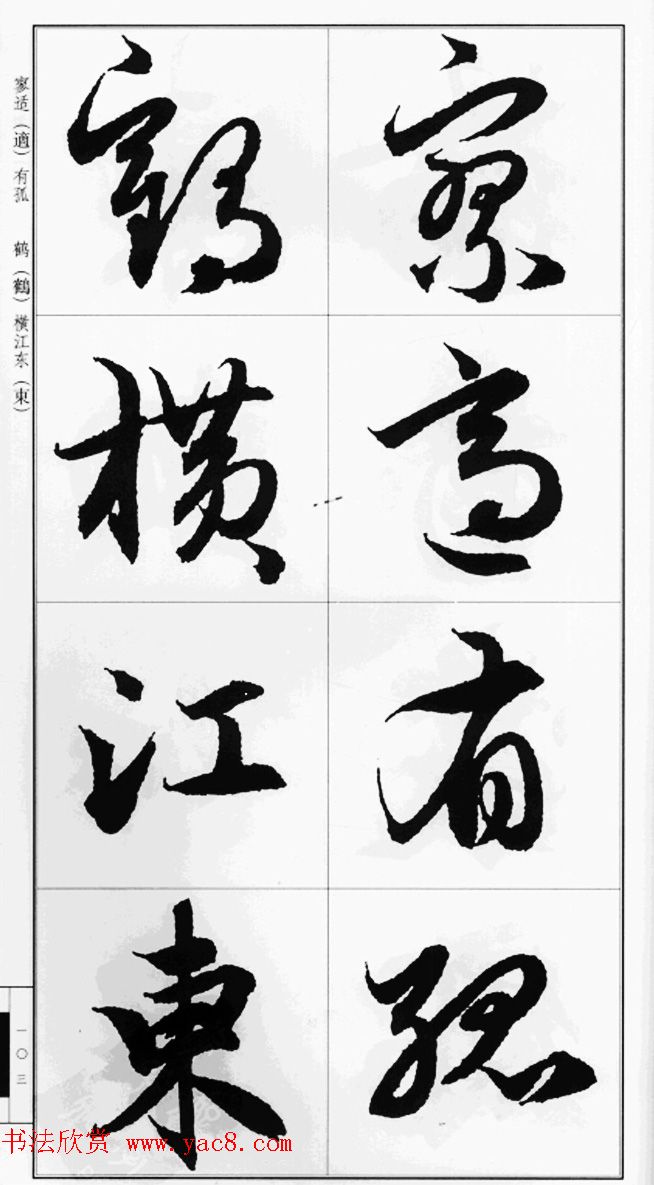 寥適有孤
鶴横江東
寥适(適)有孤 鹤(鶴)横江东(東)
一〇三
书法欣赏 www.yac8.com